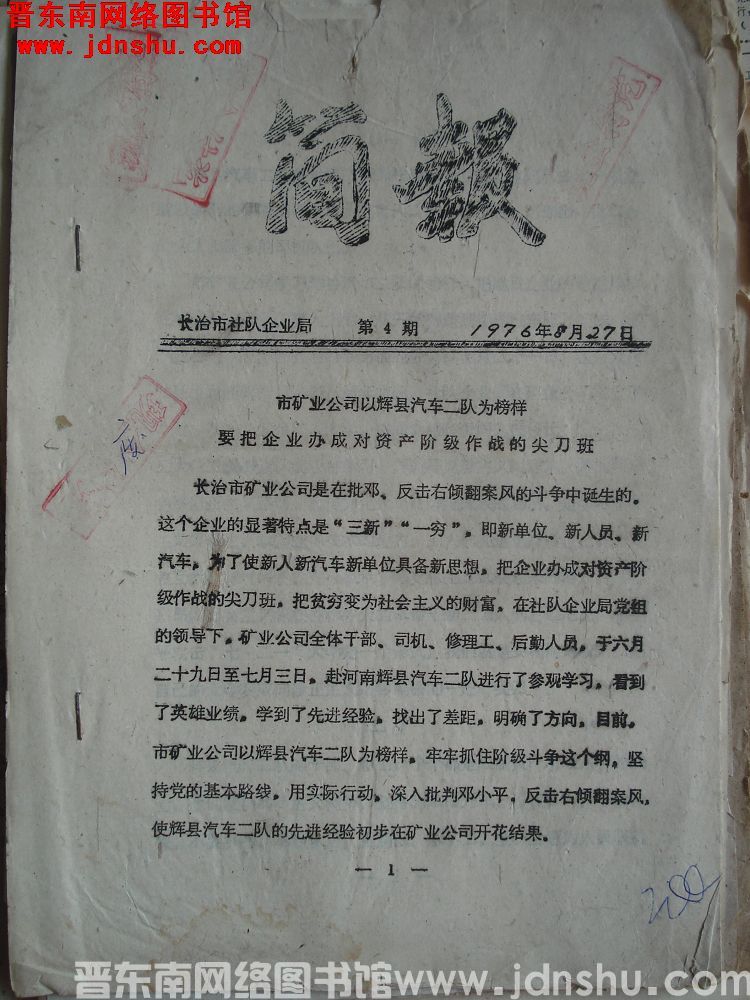 晋东南网络图书馆
www.jdnshu.com
简报
长治市社队企业局 第4期 1976年8月27日
市矿业公司以辉县汽车二队为榜样
要把企业办成对资产阶级作战的尖刀班
长治市矿业公司是在批邓、反击右倾翻案风的斗争中诞生的。
这个企业的显著特点是“三新”“一穷”，即新单位、新人员、新
汽车，为了使新人新汽车新单位具备新思想，把企业办成对资产阶
级作战的尖刀班，把贫穷变为社会主义的财富，在社队企业局党组
的领导下，矿业公司全体干部、司机、修理工、后勤人员，于六月
二十九日至七月三日，赴河南辉县汽车二队进行了参观学习，看到
了英雄业绩，学到了先进经验，找出了差距，明确了方向，目前，
市矿业公司以辉县汽车二队为榜样，牢牢抓住阶级斗争这个纲，坚
持党的基本路线，用实际行动，深入批判邓小平，反击右倾翻案风，
使辉县汽车二队的先进经验初步在矿业公司开花结果。
— 1 —
晋东南网络图书馆www.jdnshu.com